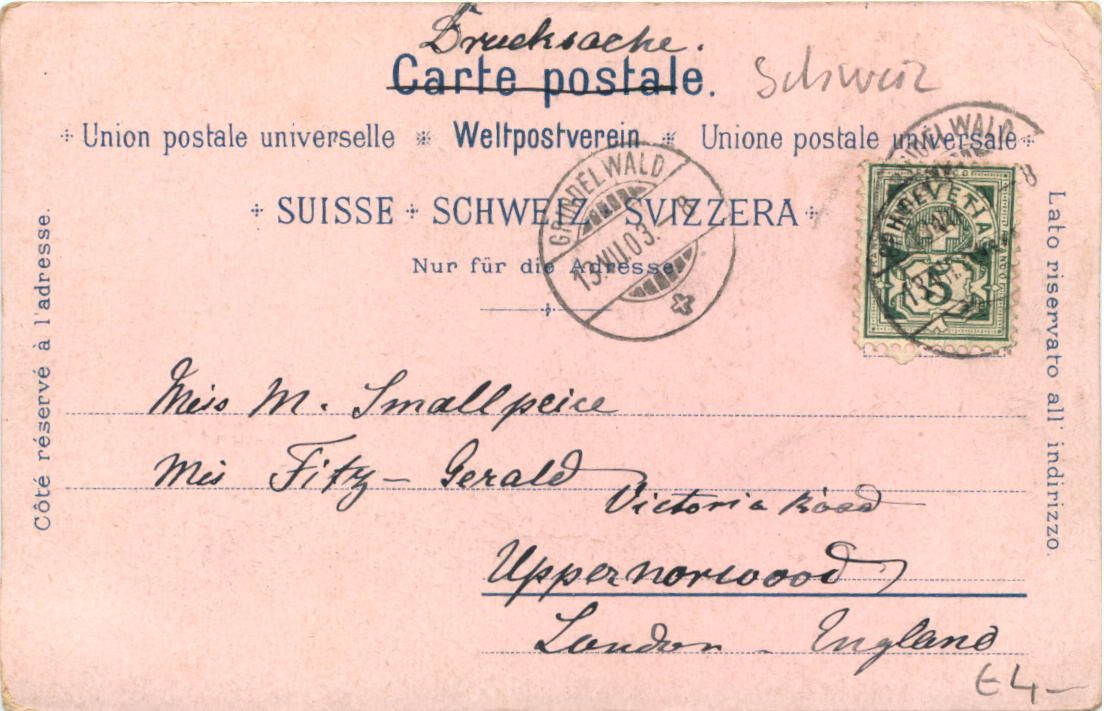 Drucksache.
Carte postale.
Schweiz
Union postale universelle * Weltpostverein * Unione postale universale
SUISSE + SCHWEIZ + SVIZZERA
Nur für die Adresse.
GRINDELWALD
13.VII.03.-8
GRINDELWALD
-8
HELVETIA
FRANCO
5
Côté réservé à l'adresse.
Lato riservato all' indirizzo.
Miss M. Smallpeice
Mis Fitz-Gerald
Victoria Road
Uppernorwood
London - England
€4-